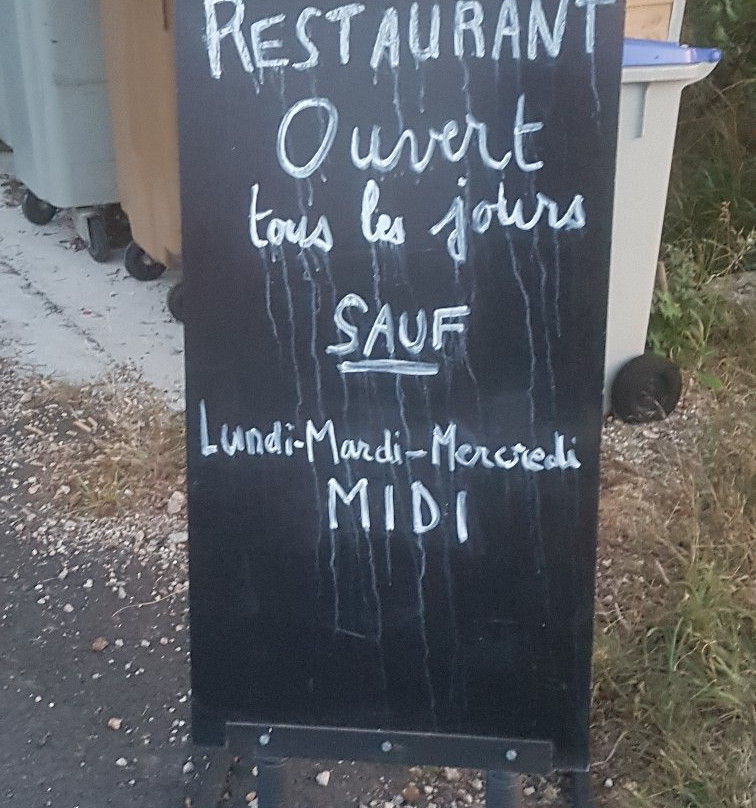 RESTAURANT
Ouvert
tous les jours
SAUF
Lundi-Mardi-Mercredi
MIDI